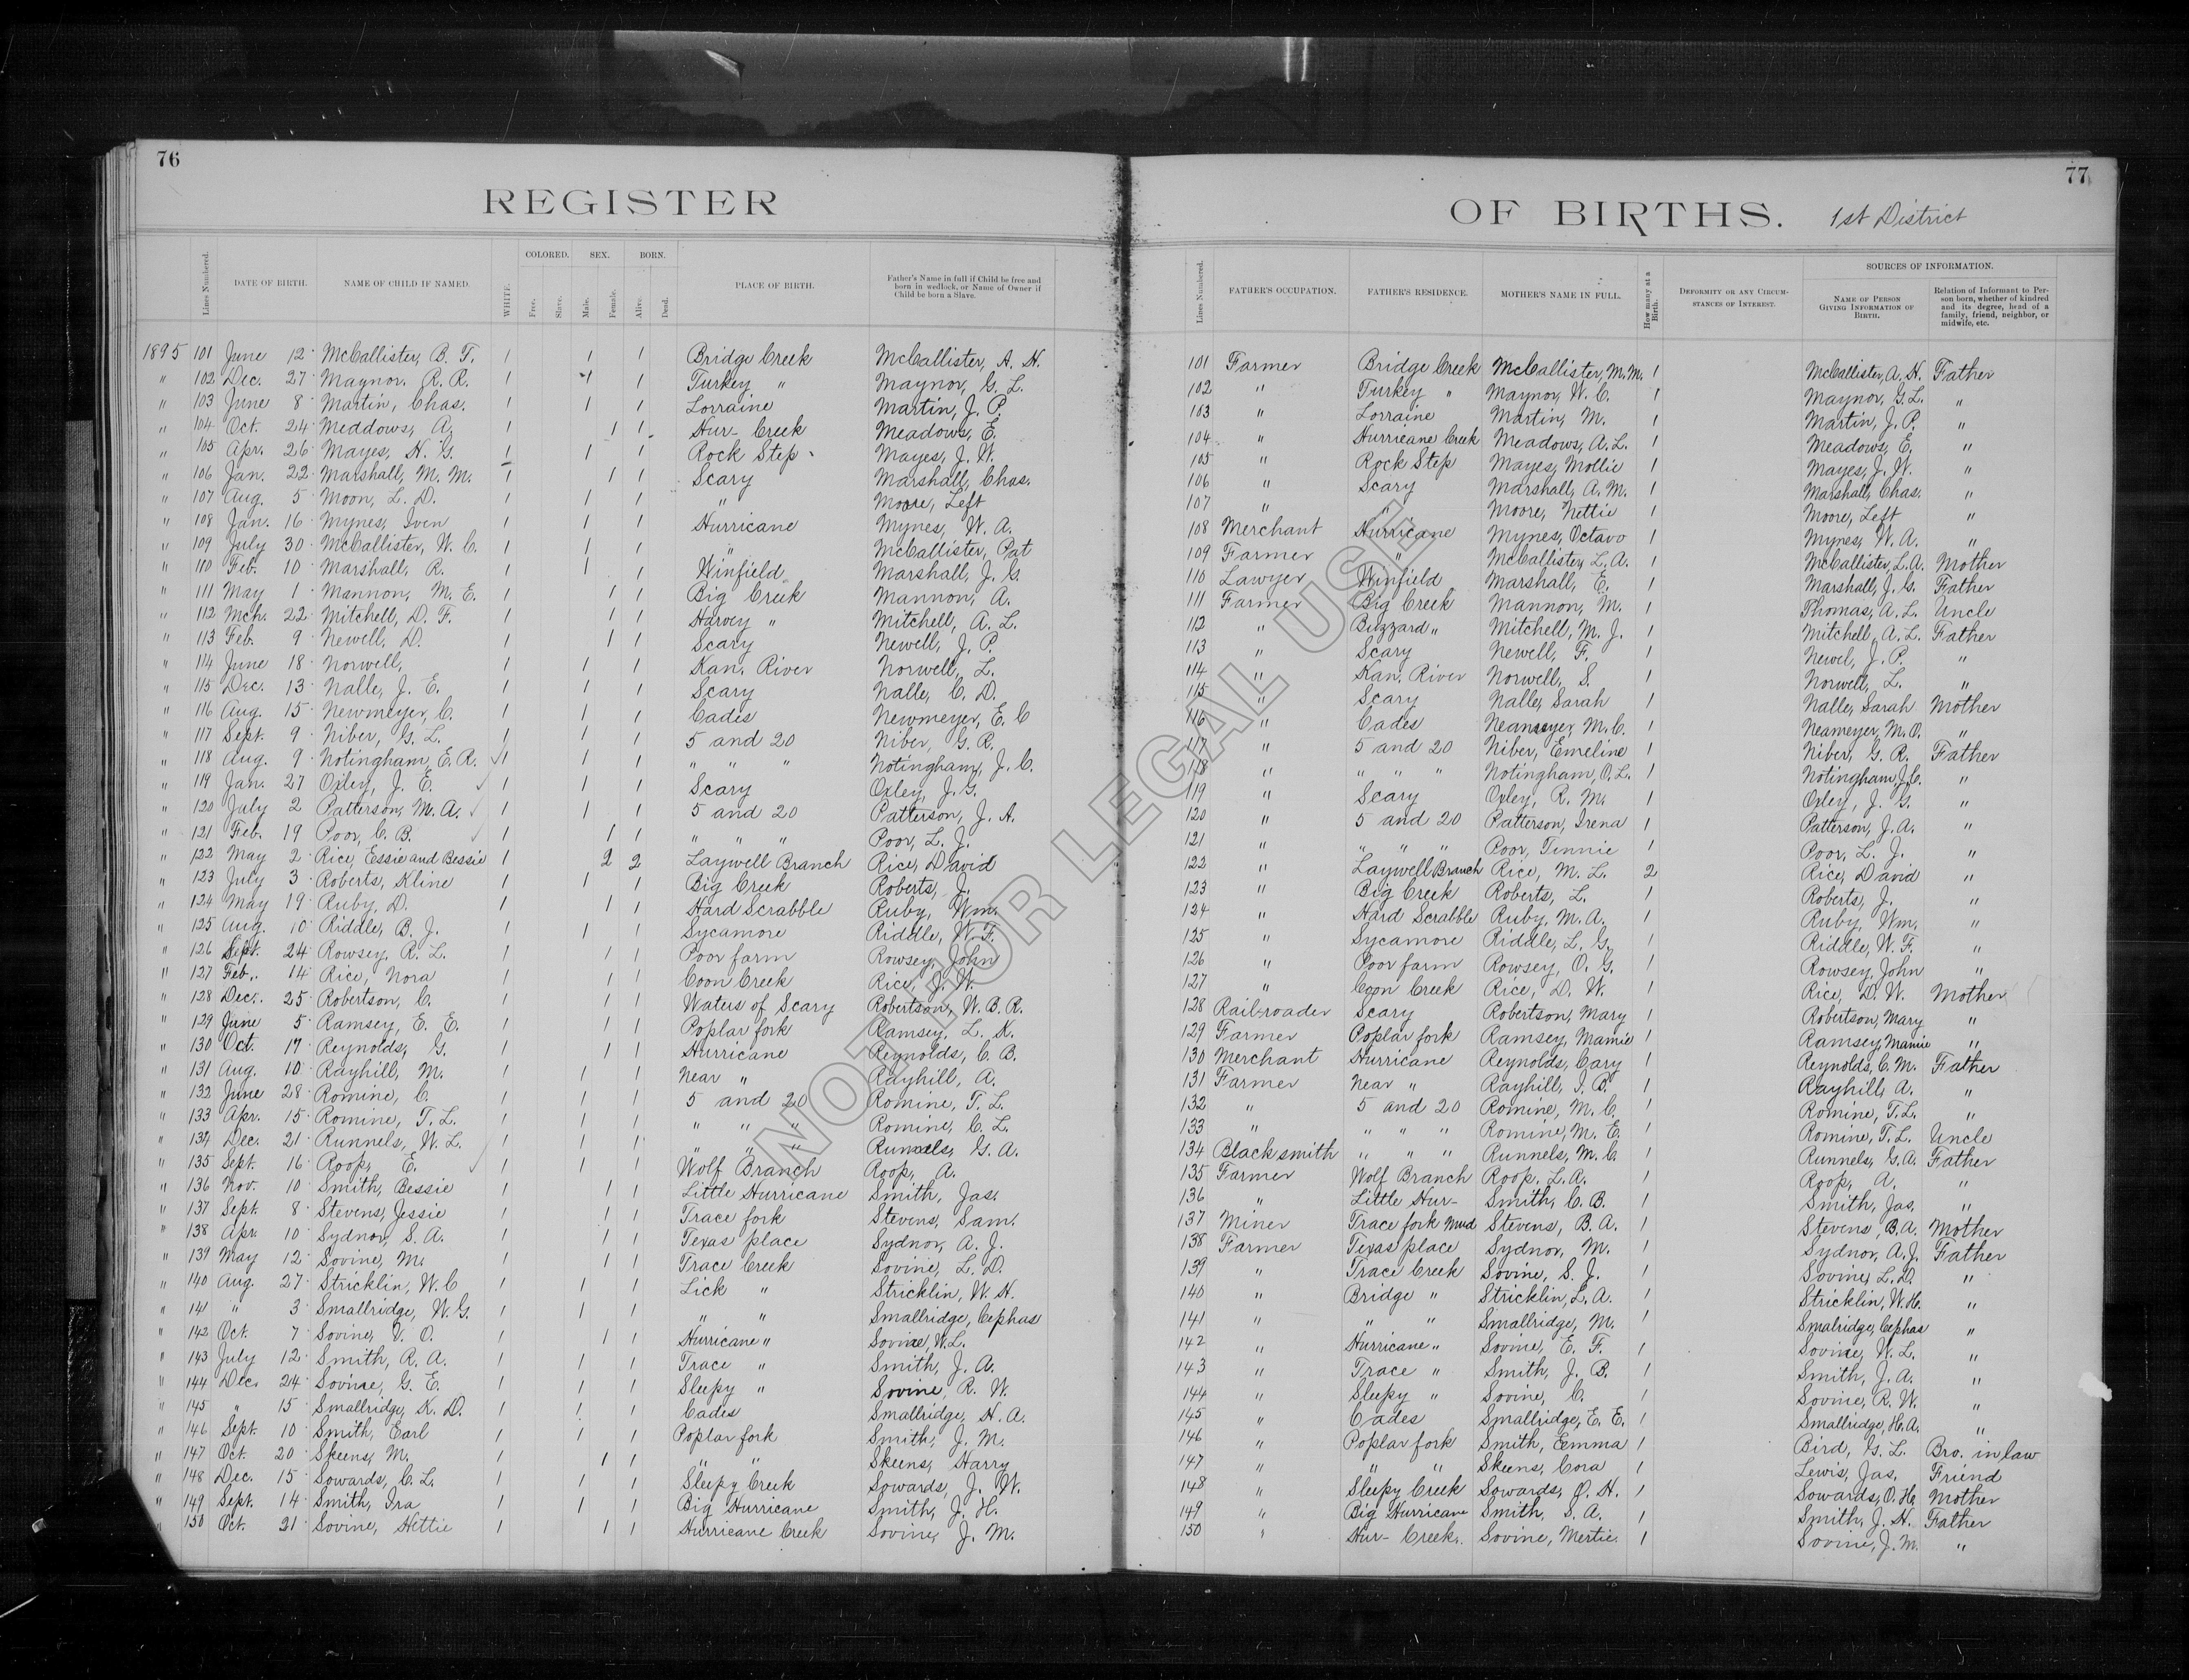 76
REGISTER
Lines Numbered. DATE OF BIRTH. NAME OF CHILD IF NAMED. WHITE. COLORED. Free. Slave. SEX. Male. Female. BORN. Alive. Dead. PLACE OF BIRTH. Father's Name in full if Child be free and born in wedlock, or Name of Owner if Child be born a Slave.
1895 101 June 12 McCallister, B. T. 1 1 1 Bridge Creek McCallister, A. H.
" 102 Dec. 27 Maynor. R. R. 1 1 1 Turkey " Maynor, G. L.
" 103 June 8 Martin, Chas. 1 1 1 Lorraine Martin, J. P.
" 104 Oct. 24 Meddows, A. 1 1 1 Hur- Creek Meadows, E.
" 105 Apr. 26 Mayes, H. G. 1 1 1 Rock Step Mayes, J. W.
" 106 Jan. 22 Marshall, M. M. 1 1 1 Scary Marshall, Chas.
" 107 Aug. 5 Moon, L. D. 1 1 1 " Moore, Left
" 108 Jan. 16 Mynes, Iven 1 1 1 Hurricane Mynes, W. A.
" 109 July 30 McCallister, W. C. 1 1 1 " McCallister, Pat
" 110 Feb. 10 Marshall, R. 1 1 1 Winfield Marshall, J. G.
" 111 May 1 Mannon, M. E. 1 1 1 Big Creek Mannon, A.
" 112 Mch. 22 Mitchell, D. F. 1 1 1 Harvey " Mitchell, A. L.
" 113 Feb. 9 Newell, D. 1 1 1 Scary Newell, J. P.
" 114 June 18 Norwell, 1 1 1 Kan. River Norwell, L.
" 115 Dec. 13 Nalle, J. E. 1 1 1 Scary Nalle, C. D.
" 116 Aug. 15 Newmeyer, C. 1 1 1 Cades Newmeyer, E. C
" 117 Sept. 9 Niber, G. L. 1 1 1 5 and 20 Niber, G. R.
" 118 Aug. 9 Notingham, E. R. 1 1 1 " " " Notingham, J. C.
" 119 Jan. 27 Oxley, J. E. 1 1 1 Scary Oxley, J. G.
" 120 July 2 Patterson, M. A. 1 1 1 5 and 20 Patterson, J. A.
" 121 Feb. 19 Poor, C. B. 1 1 1 " " " Poor, L. J.
" 122 May 2 Rice, Essie and Bessie 1 2 2 Laywell Branch Rice, David
" 123 July 3 Roberts, Kline 1 1 1 Big Creek Roberts, J.
" 124 May 19 Ruby, D. 1 1 1 Hard Scrabble Ruby, Wm.
" 125 Aug. 10 Riddle, B. J. 1 1 1 Sycamore Riddle, W. F.
" 126 Sept. 24 Rowsey, R. L. 1 1 1 Poor farm Rowsey, John
" 127 Feb. 14 Rice, Nora 1 1 1 Coon Creek Rice, D. W.
" 128 Dec. 25 Robertson, C. 1 1 1 Waters of Scary Robertson, W. B. R.
" 129 June 5 Ramsey, E. E. 1 1 1 Poplar fork Ramsey, L. K.
" 130 Oct. 17 Reynolds, G. 1 1 1 Hurricane Reynolds, C. B.
" 131 Aug. 10 Rayhill, M. 1 1 1 Near " Rayhill, A.
" 132 June 28 Romine, C. 1 1 1 5 and 20 Romine, T. L.
" 133 Apr. 15 Romine, T. L. 1 1 1 " " " Romine, C. L.
" 134 Dec. 21 Runnels, W. L. 1 1 1 " " " Runnels, G. A.
" 135 Sept. 16 Roop, E. 1 1 1 Wolf Branch Roop, A.
" 136 Nov. 10 Smith, Bessie 1 1 1 Little Hurricane Smith, Jas.
" 137 Sept. 8 Stevens, Jessie 1 1 1 Trace fork Stevens, Sam.
" 138 Apr. 10 Sydnor, S. A. 1 1 1 Texas place Sydnor, A. J.
" 139 May 12 Sovine, M. 1 1 1 Trace Creek Sovine, L. D.
" 140 Aug. 27 Stricklin, W. C 1 1 1 Lick " Stricklin, W. H.
" 141 " 3 Smallridge, W. G. 1 1 1 " " Smallridge, Cephas
" 142 Oct. 7 Sovine, V. O. 1 1 1 Hurricane " Sovine, W. L.
" 143 July 12 Smith, R. A. 1 1 1 Trace " Smith, J. A.
" 144 Dec. 24 Sovine, G. E. 1 1 1 Sleepy " Sovine, R. W.
" 145 " 15 Smallridge, K. D. 1 1 1 Cades Smallridge, H. A.
" 146 Sept. 10 Smith, Earl 1 1 1 Poplar fork Smith, J. M.
" 147 Oct. 20 Skeens, M. 1 1 1 " " Skeens, Harry
" 148 Dec. 15 Sowards, C. L. 1 1 1 Sleepy Creek Sowards, J. W.
" 149 Sept. 14 Smith, Ira 1 1 1 Big Hurricane Smith, J. H.
" 150 Oct. 21 Sovine, Hettie 1 1 1 Hurricane Creek Sovine, J. M.
77
OF BIRTHS. 1st District
Lines Numbered. FATHER'S OCCUPATION. FATHER'S RESIDENCE. MOTHER'S NAME IN FULL. How many at a Birth. DEFORMITY OR ANY CIRCUMSTANCES OF INTEREST. SOURCES OF INFORMATION. NAME OF PERSON GIVING INFORMATION OF BIRTH. Relation of Informant to Person born, whether of kindred and its degree, head of a family, friend, neighbor, or midwife, etc.
101 Farmer Bridge Creek McCallister, M. M. 1 McCallister, A. H. Father
102 " Turkey " Maynor, W. C. 1 Maynor, G. L. "
103 " Lorraine Martin, M. 1 Martin, J. P. "
104 " Hurricane Creek Meadows, A. L. 1 Meadows, E. "
105 " Rock Step Mayes, Mollie 1 Mayes, J. W. "
106 " Scary Marshall, A. M. 1 Marshall, Chas. "
107 " " Moore, Nettie 1 Moore, Left "
108 Merchant Hurricane Mynes, Octavo 1 Mynes, W. A. "
109 Farmer " McCallister, L. A. 1 McCallister, L. A. Mother
110 Lawyer Winfield Marshall, E. 1 Marshall, J. G. Father
111 Farmer Big Creek Mannon, M. 1 Thomas, A. L. Uncle
112 " Buzzard " Mitchell, M. J. 1 Mitchell, A. L. Father
113 " Scary Newell, F. 1 Newel, J. P. "
114 " Kan. River Norwell, S. 1 Norwell, L. "
115 " Scary Nalle, Sarah 1 Nalle, Sarah Mother
116 " Cades Neameyer, M. C. 1 Neameyer, M. O. "
117 " 5 and 20 Niber, Emeline 1 Niber, G. R. Father
118 " " " " Notingham, O. L. 1 Notingham, J. C. "
119 " Scary Oxley, R. M. 1 Oxley, J. G. "
120 " 5 and 20 Patterson, Irena 1 Patterson, J. A. "
121 " " " " Poor, Tinnie 1 Poor, L. J. "
122 " Laywell Branch Rice, M. L. 2 Rice, David "
123 " Big Creek Roberts, L. 1 Roberts, J. "
124 " Hard Scrabble Ruby, M. A. 1 Ruby, Wm. "
125 " Sycamore Riddle, L. G. 1 Riddle, W. F. "
126 " Poor farm Rowsey, O. G. 1 Rowsey, John "
127 " Coon Creek Rice, D. W. 1 Rice, D. W. Mother
128 Railroader Scary Robertson, Mary 1 Robertson, Mary "
129 Farmer Poplar fork Ramsey, Mamie 1 Ramsey, Mamie "
130 Merchant Hurricane Reynolds, Cary 1 Reynolds, C. M. Father
131 Farmer Near " Rayhill, I. B. 1 Rayhill, A. "
132 " 5 and 20 Romine, M. C. 1 Romine, T. L. "
133 " " " " Romine, M. E. 1 Romine, T. L. Uncle
134 Blacksmith " " " Runnels, M. C. 1 Runnels, G. A. Father
135 Farmer Wolf Branch Roop, L. A. 1 Roop, A. "
136 " Little Hur- Smith, C. B. 1 Smith, Jas. "
137 Miner Trace fork Mud Stevens, B. A. 1 Stevens, B. A. Mother
138 Farmer Texas place Sydnor, M. 1 Sydnor, A. J. Father
139 " Trace Creek Sovine, S. J. 1 Sovine, L. D. "
140 " Bridge " Stricklin, L. A. 1 Stricklin, W. H. "
141 " " " Smallridge, M. 1 Smalridge, Cephas "
142 " Hurricane " Sovine, E. F. 1 Sovine, W. L. "
143 " Trace " Smith, J. B. 1 Smith, J. A. "
144 " Sleepy " Sovine, C. 1 Sovine, R. W. "
145 " Cades Smallridge, E. E. 1 Smallridge, H. A. "
146 " Poplar fork Smith, Emma 1 Bird, G. L. Bro. in law
147 " " " Skeens, Cora 1 Lewis, Jas. Friend
148 " Sleepy Creek Sowards, O. H. 1 Sowards, O. H. Mother
149 " Big Hurricane Smith, S. A. 1 Smith, J. H. Father
150 " Hur- Creek. Sovine, Mertie. 1 Sovine, J. M. "
NOT FOR LEGAL USE